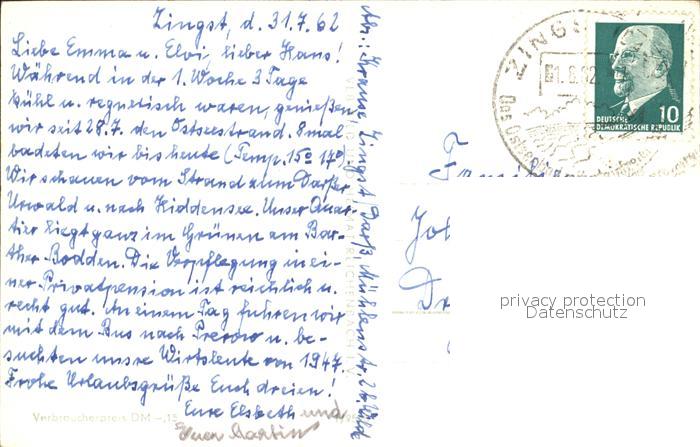 Zingst, d. 31.7.62
Liebe Emma u. Elvi, lieber Hans!
Während in der 1. Woche 3 Tage
kühl u. regnerisch waren, genießen
wir seit 28.7. den Ostseestrand. 8 mal
badeten wir bis heute (Temp. 15° 17°)
Wir schauen vom Strand zum Darßer
Urwald u. nach Hiddensee. Unser Quar-
tier liegt ganz im Grünen am Bar-
ther Bodden. Die Verpflegung in ei-
ner Privatpension ist reichlich u.
recht gut. An einem Tag fuhren wir
mit dem Bus nach Prerow u. be-
suchten unsre Wirtsleute von 1947
Frohe Urlaubsgrüße Euch dreien!
Eure Elsbeth und
Euer Martin
Verbraucherpreis DM -,15
Abs.: Krause, Zingst, Darß,
ZINGST
DEUTSCHE
DEMOKRATISCHE REPUBLIK
10
privacy protection
Datenschutz